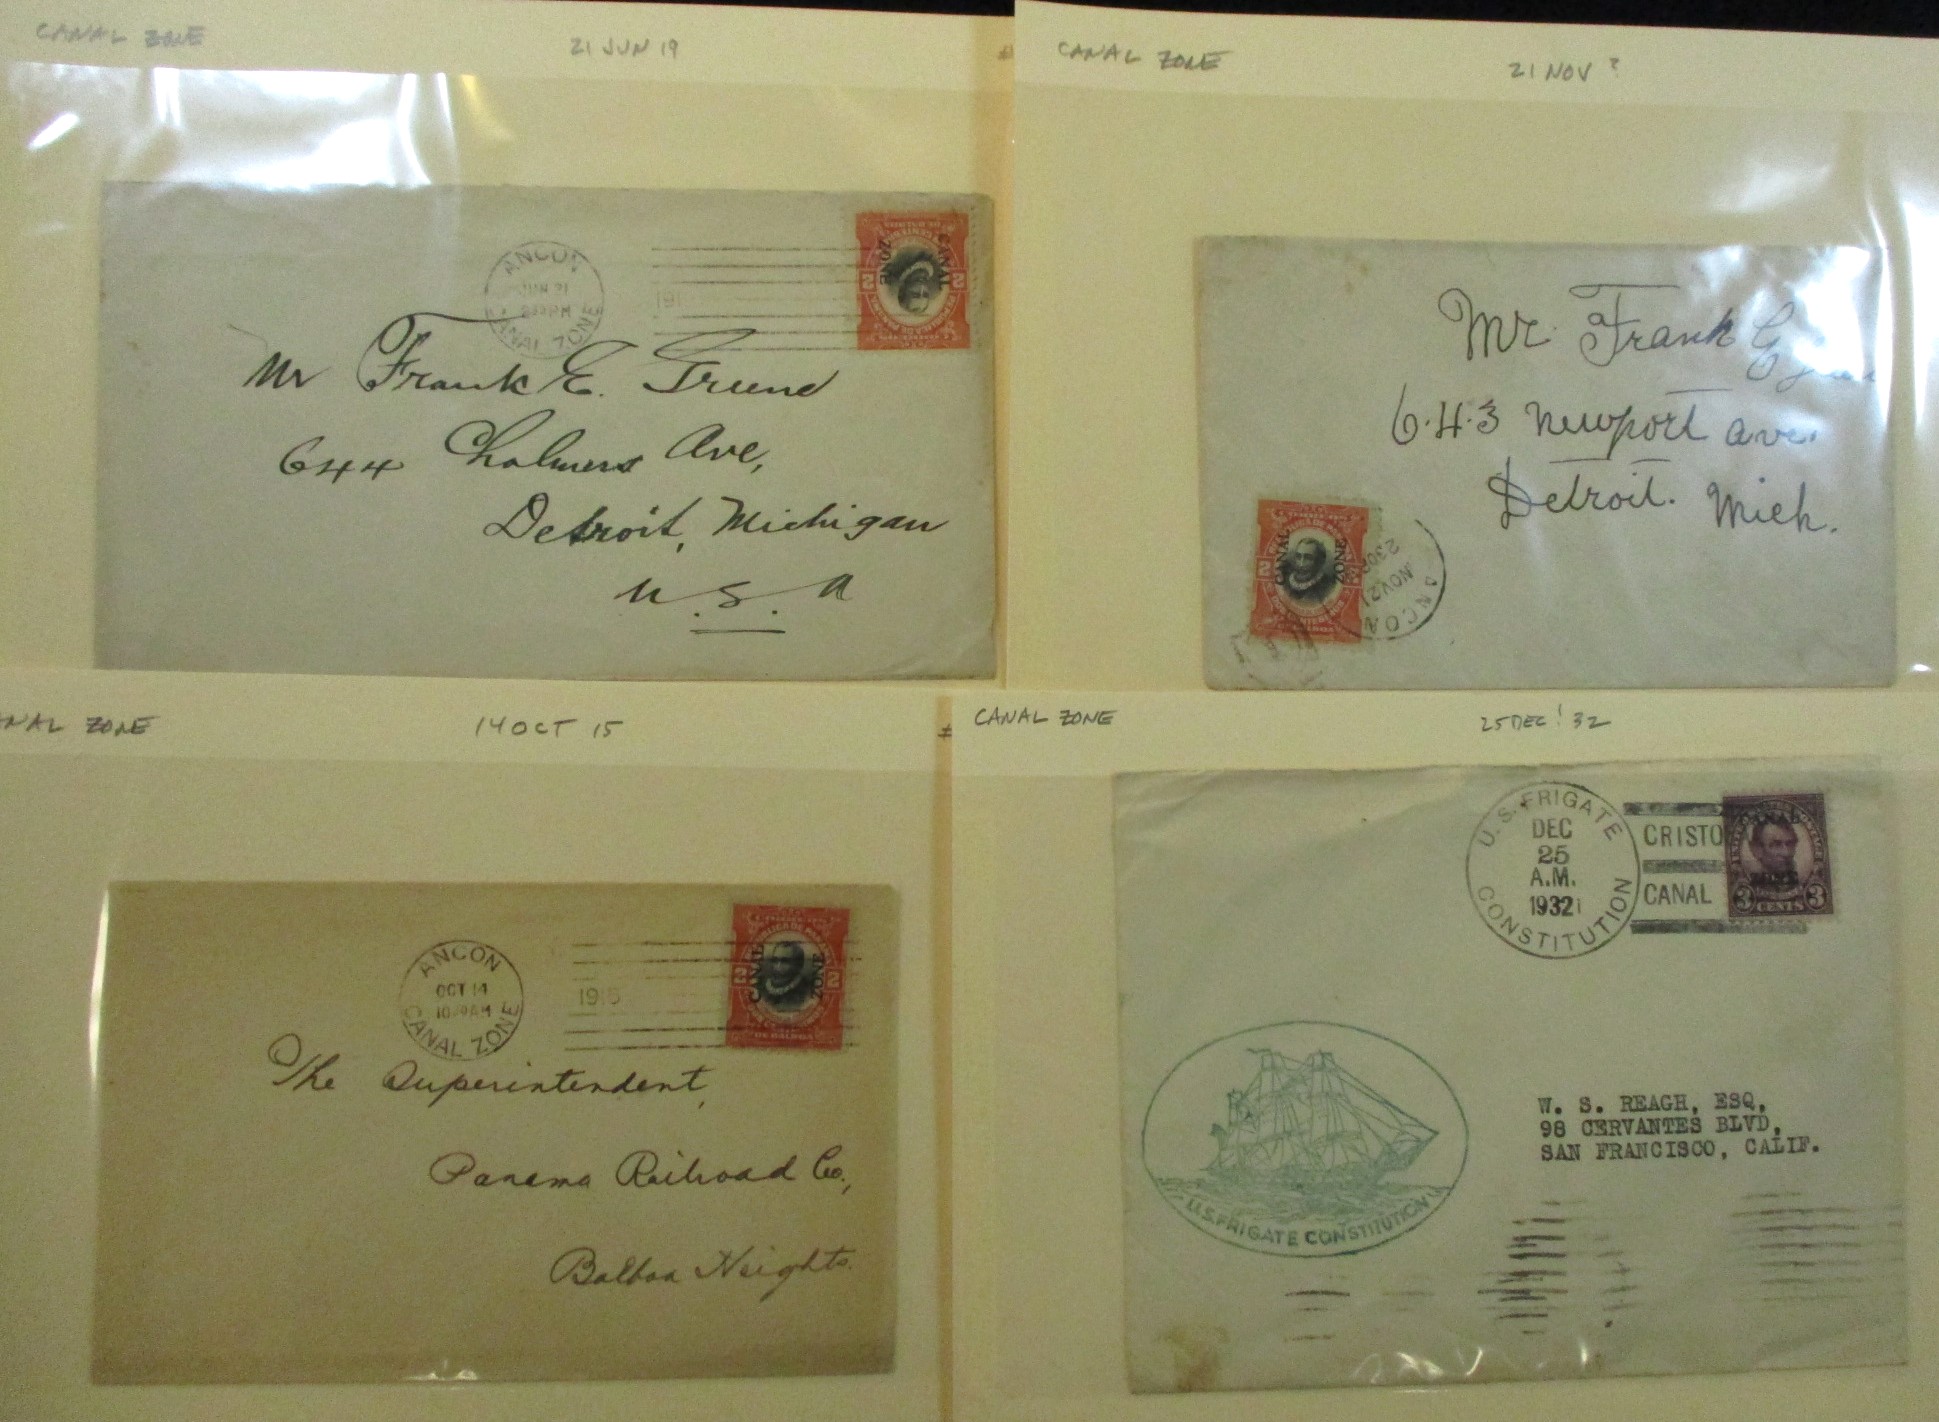 CANAL ZONE
21 JUN 19
ANCON
JUN 21
CANAL ZONE
191
CANAL ZONE
2 2
Mr Frank E. Freund
644 Chalmers Ave,
Detroit, Michigan
U.S.A
CANAL ZONE
21 NOV ?
Mr. Frank
643 Newport ave.
Detroit. Mich.
CANAL ZONE
2
ANCON
NOV 21
230P
ANAL ZONE
14 OCT 15
ANCON
OCT 14
CANAL ZONE
1915
REPUBLICA DE PANAMA
CANAL ZONE
2 2
DE BALBOA
The Superintendent,
Panama Railroad Co.,
Balboa Heights.
CANAL ZONE
25 DEC ! 32
U.S. FRIGATE
DEC
25
A.M.
1932
CONSTITUTION
CRISTO
CANAL
CANAL
ZONE
3 CENTS 3
W. S. REAGH, ESQ,
98 CERVANTES BLVD,
SAN FRANCISCO, CALIF.
U.S. FRIGATE CONSTITUTION